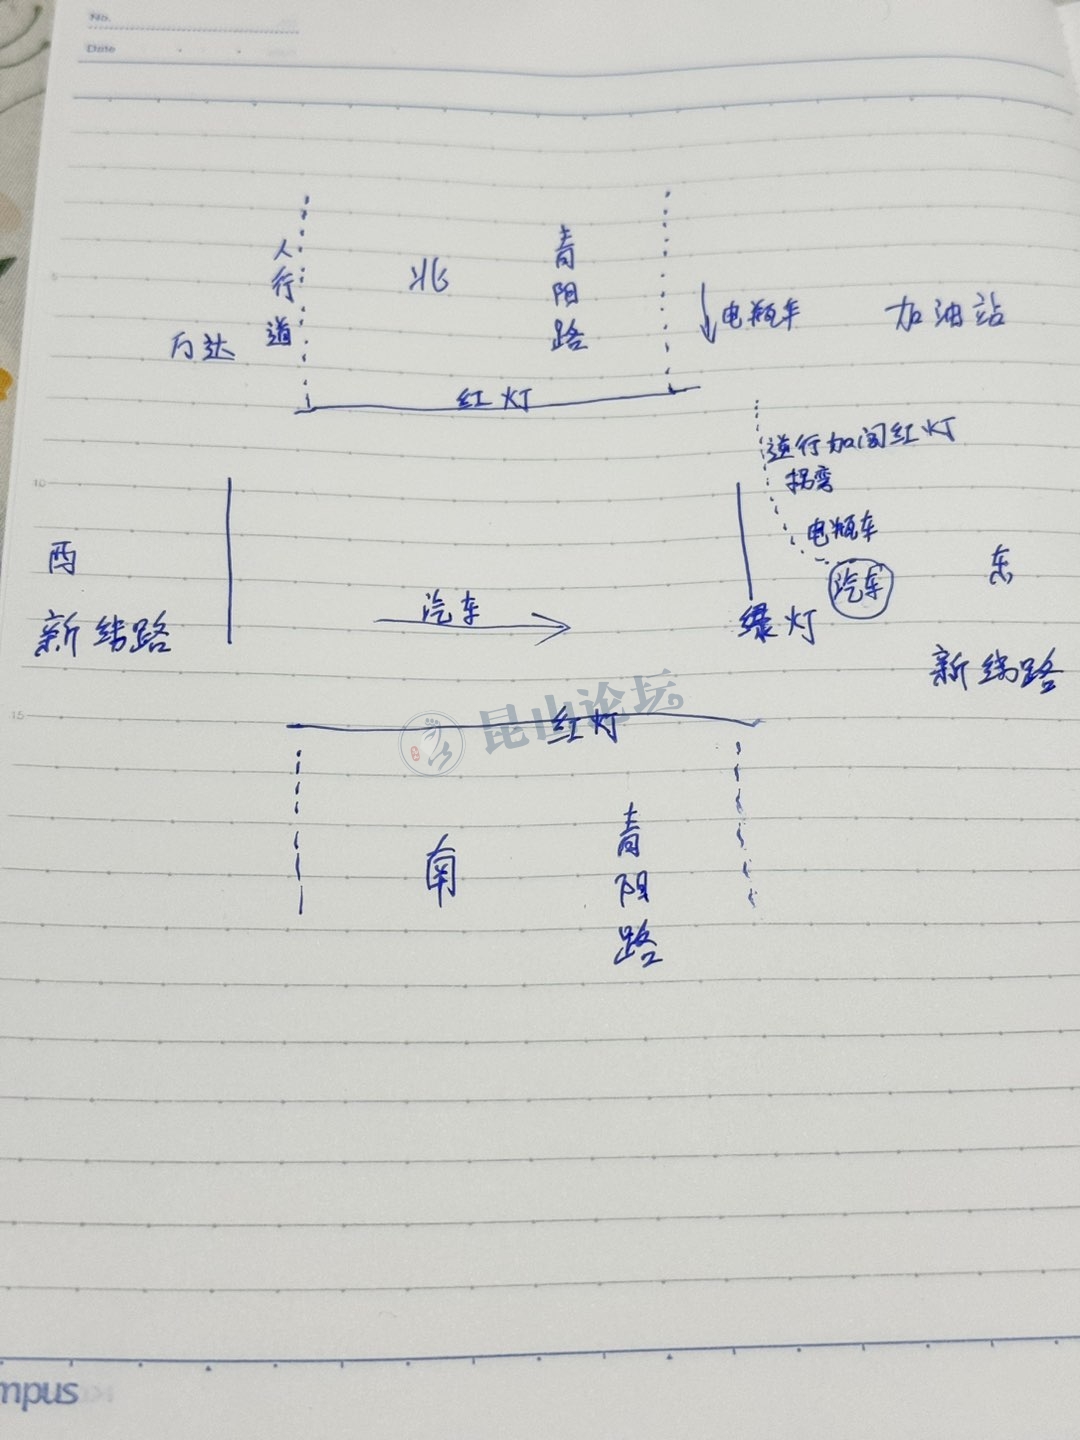 No.
Date
人行道
北
青阳路
电瓶车
加油站
万达
红灯
逆行加闯红灯
拐弯
电瓶车
汽车
西
东
汽车
绿灯
新纬路
新纬路
昆山论坛
红灯
南
青阳路
5
10
15
mpus